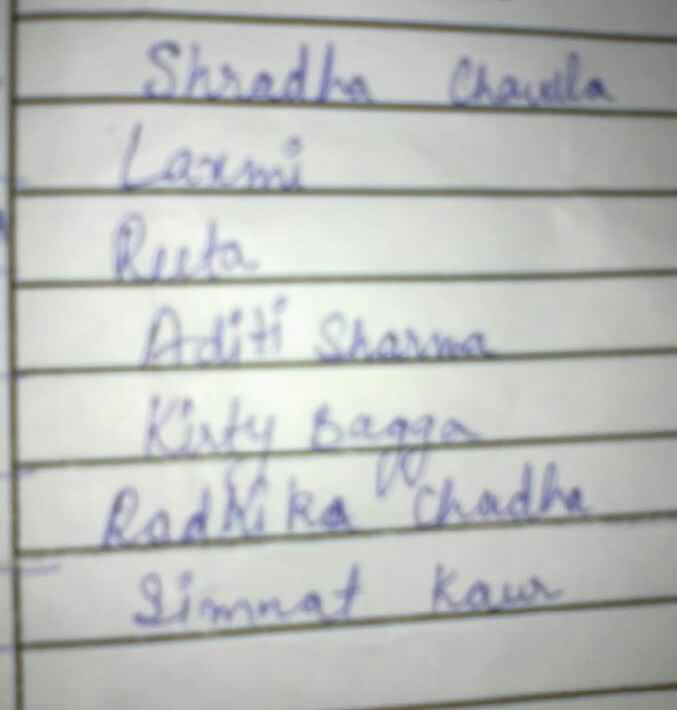 Shradha Chawla
Laxmi
Reeta
Aditi Sharma
Kirty Bagga
Radhika Chadha
Simnat Kaur